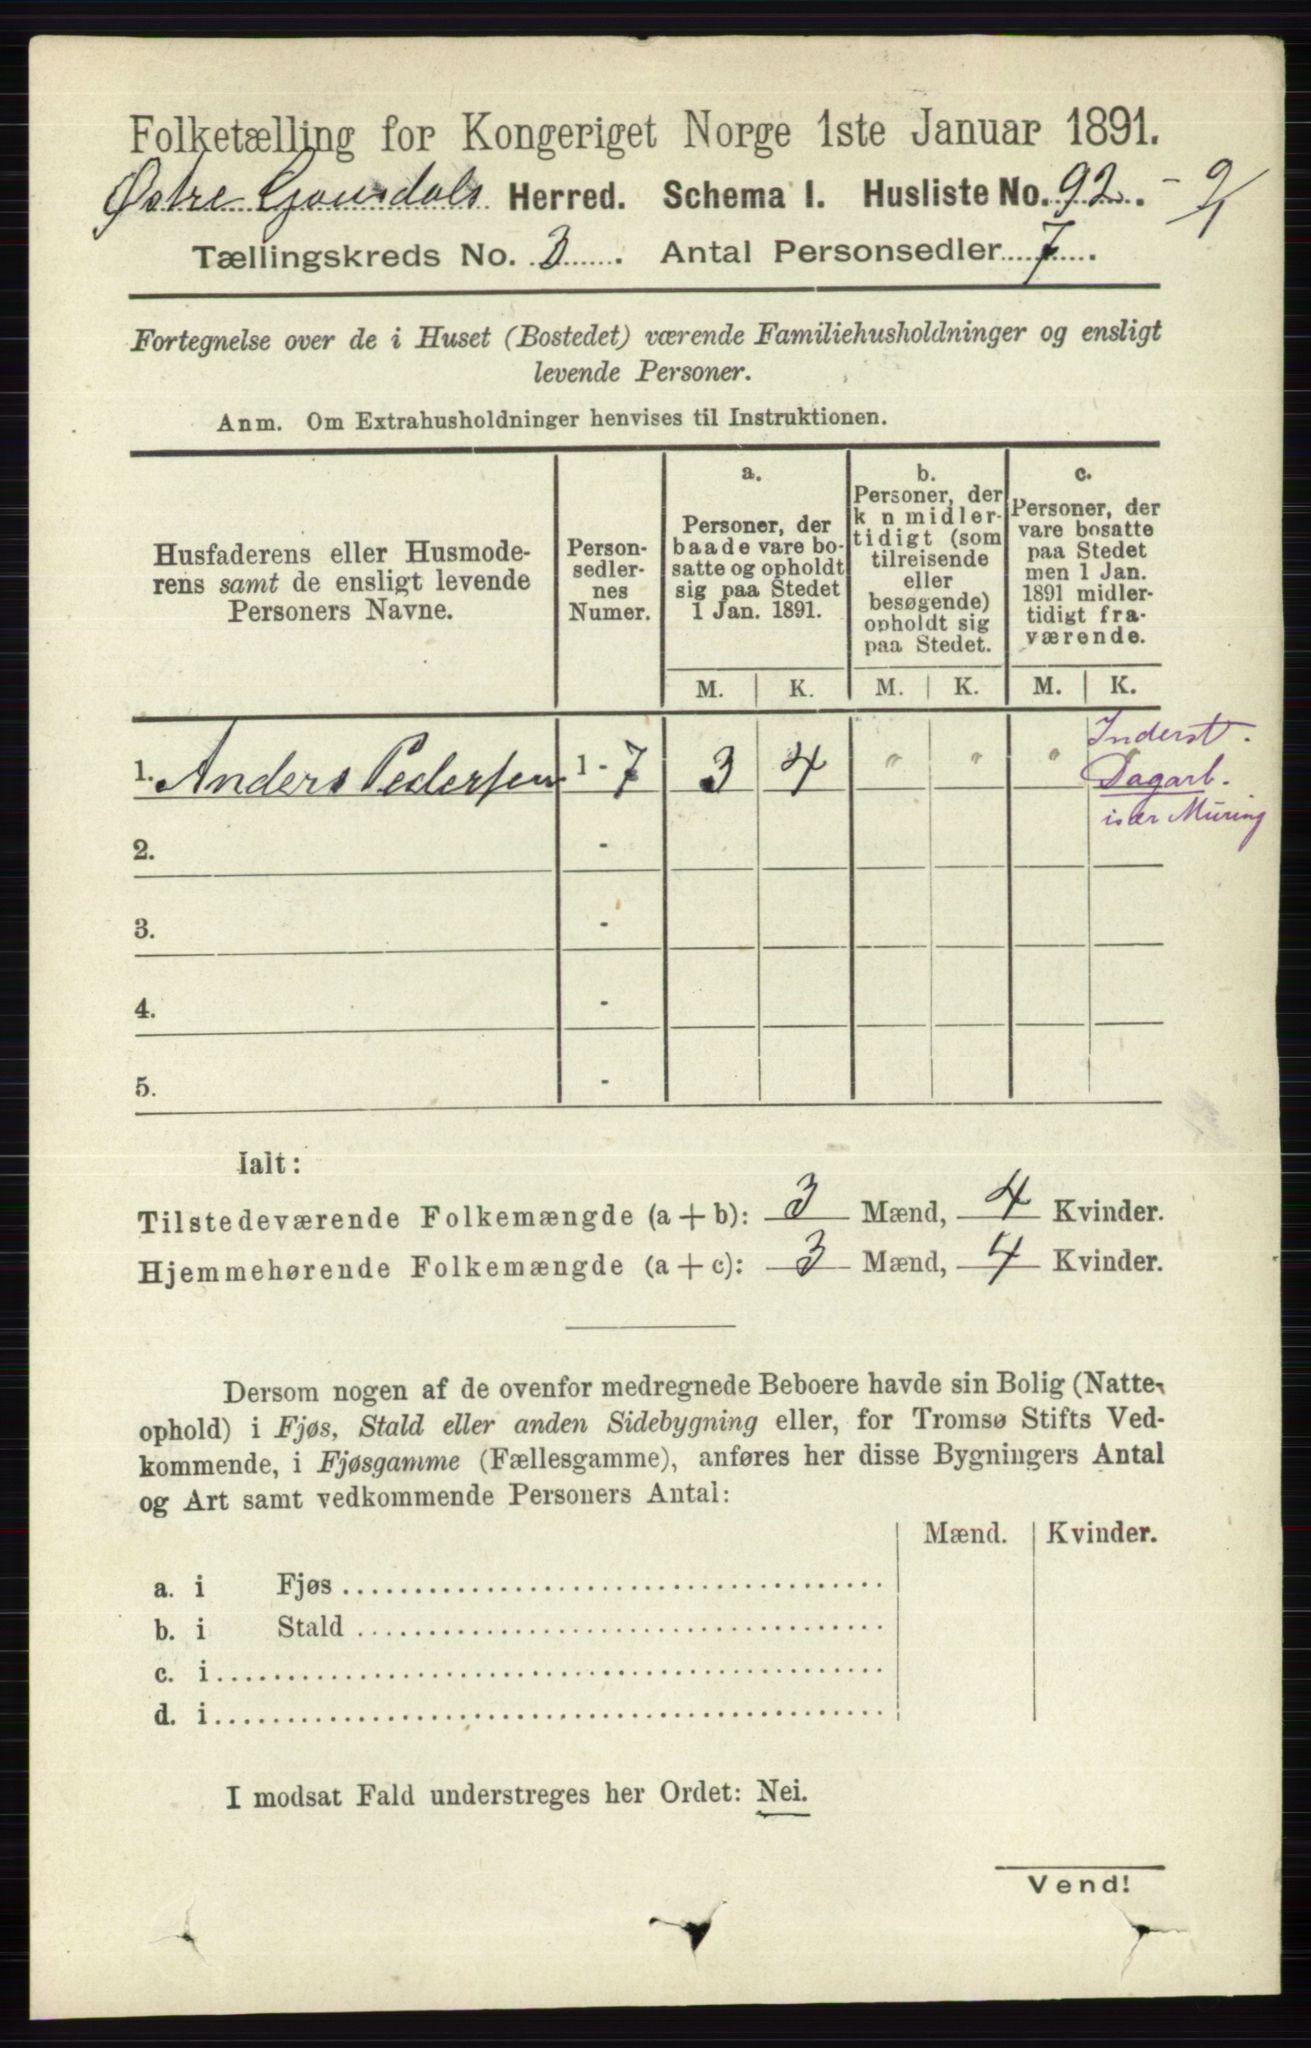 Folketælling for Kongeriget Norge 1ste Januar 1891.
Østre Gausdals Herred. Schema I. Husliste No. 92.
Tællingskreds No. 3. Antal Personsedler 7.
Fortegnelse over de i Huset (Bostedet) værende Familiehusholdninger og ensligt
levende Personer.
Anm. Om Extrahusholdninger henvises til Instruktionen.
Husfaderens eller Husmode-
rens samt de ensligt levende
Personers Navne.
Person-
sedler-
nes
Numer.
a.
Personer, der
baade vare bo-
satte og opholdt
sig paa Stedet
1 Jan. 1891.
b.
Personer, der
k n midler-
tidigt (som
tilreisende
eller
besøgende)
opholdt sig
paa Stedet.
c.
Personer, der
vare bosatte
paa Stedet
men 1 Jan.
1891 midler-
tidigt fra-
værende.
M. K. M. K. M. K.
1. Anders Pedersen 1 - 7 3 4 " " " "
Inderst.
Dagarb.
især Muring
2. -
3. -
4. -
5. -
Ialt:
Tilstedeværende Folkemængde (a + b): 3 Mænd, 4 Kvinder.
Hjemmehørende Folkemængde (a + c): 3 Mænd, 4 Kvinder.
Dersom nogen af de ovenfor medregnede Beboere havde sin Bolig (Natte-
ophold) i Fjøs, Stald eller anden Sidebygning eller, for Tromsø Stifts Ved-
kommende, i Fjøsgamme (Fællesgamme), anføres her disse Bygningers Antal
og Art samt vedkommende Personers Antal:
Mænd. Kvinder.
a. i Fjøs
b. i Stald
c. i
d. i
I modsat Fald understreges her Ordet: Nei.
Vend!